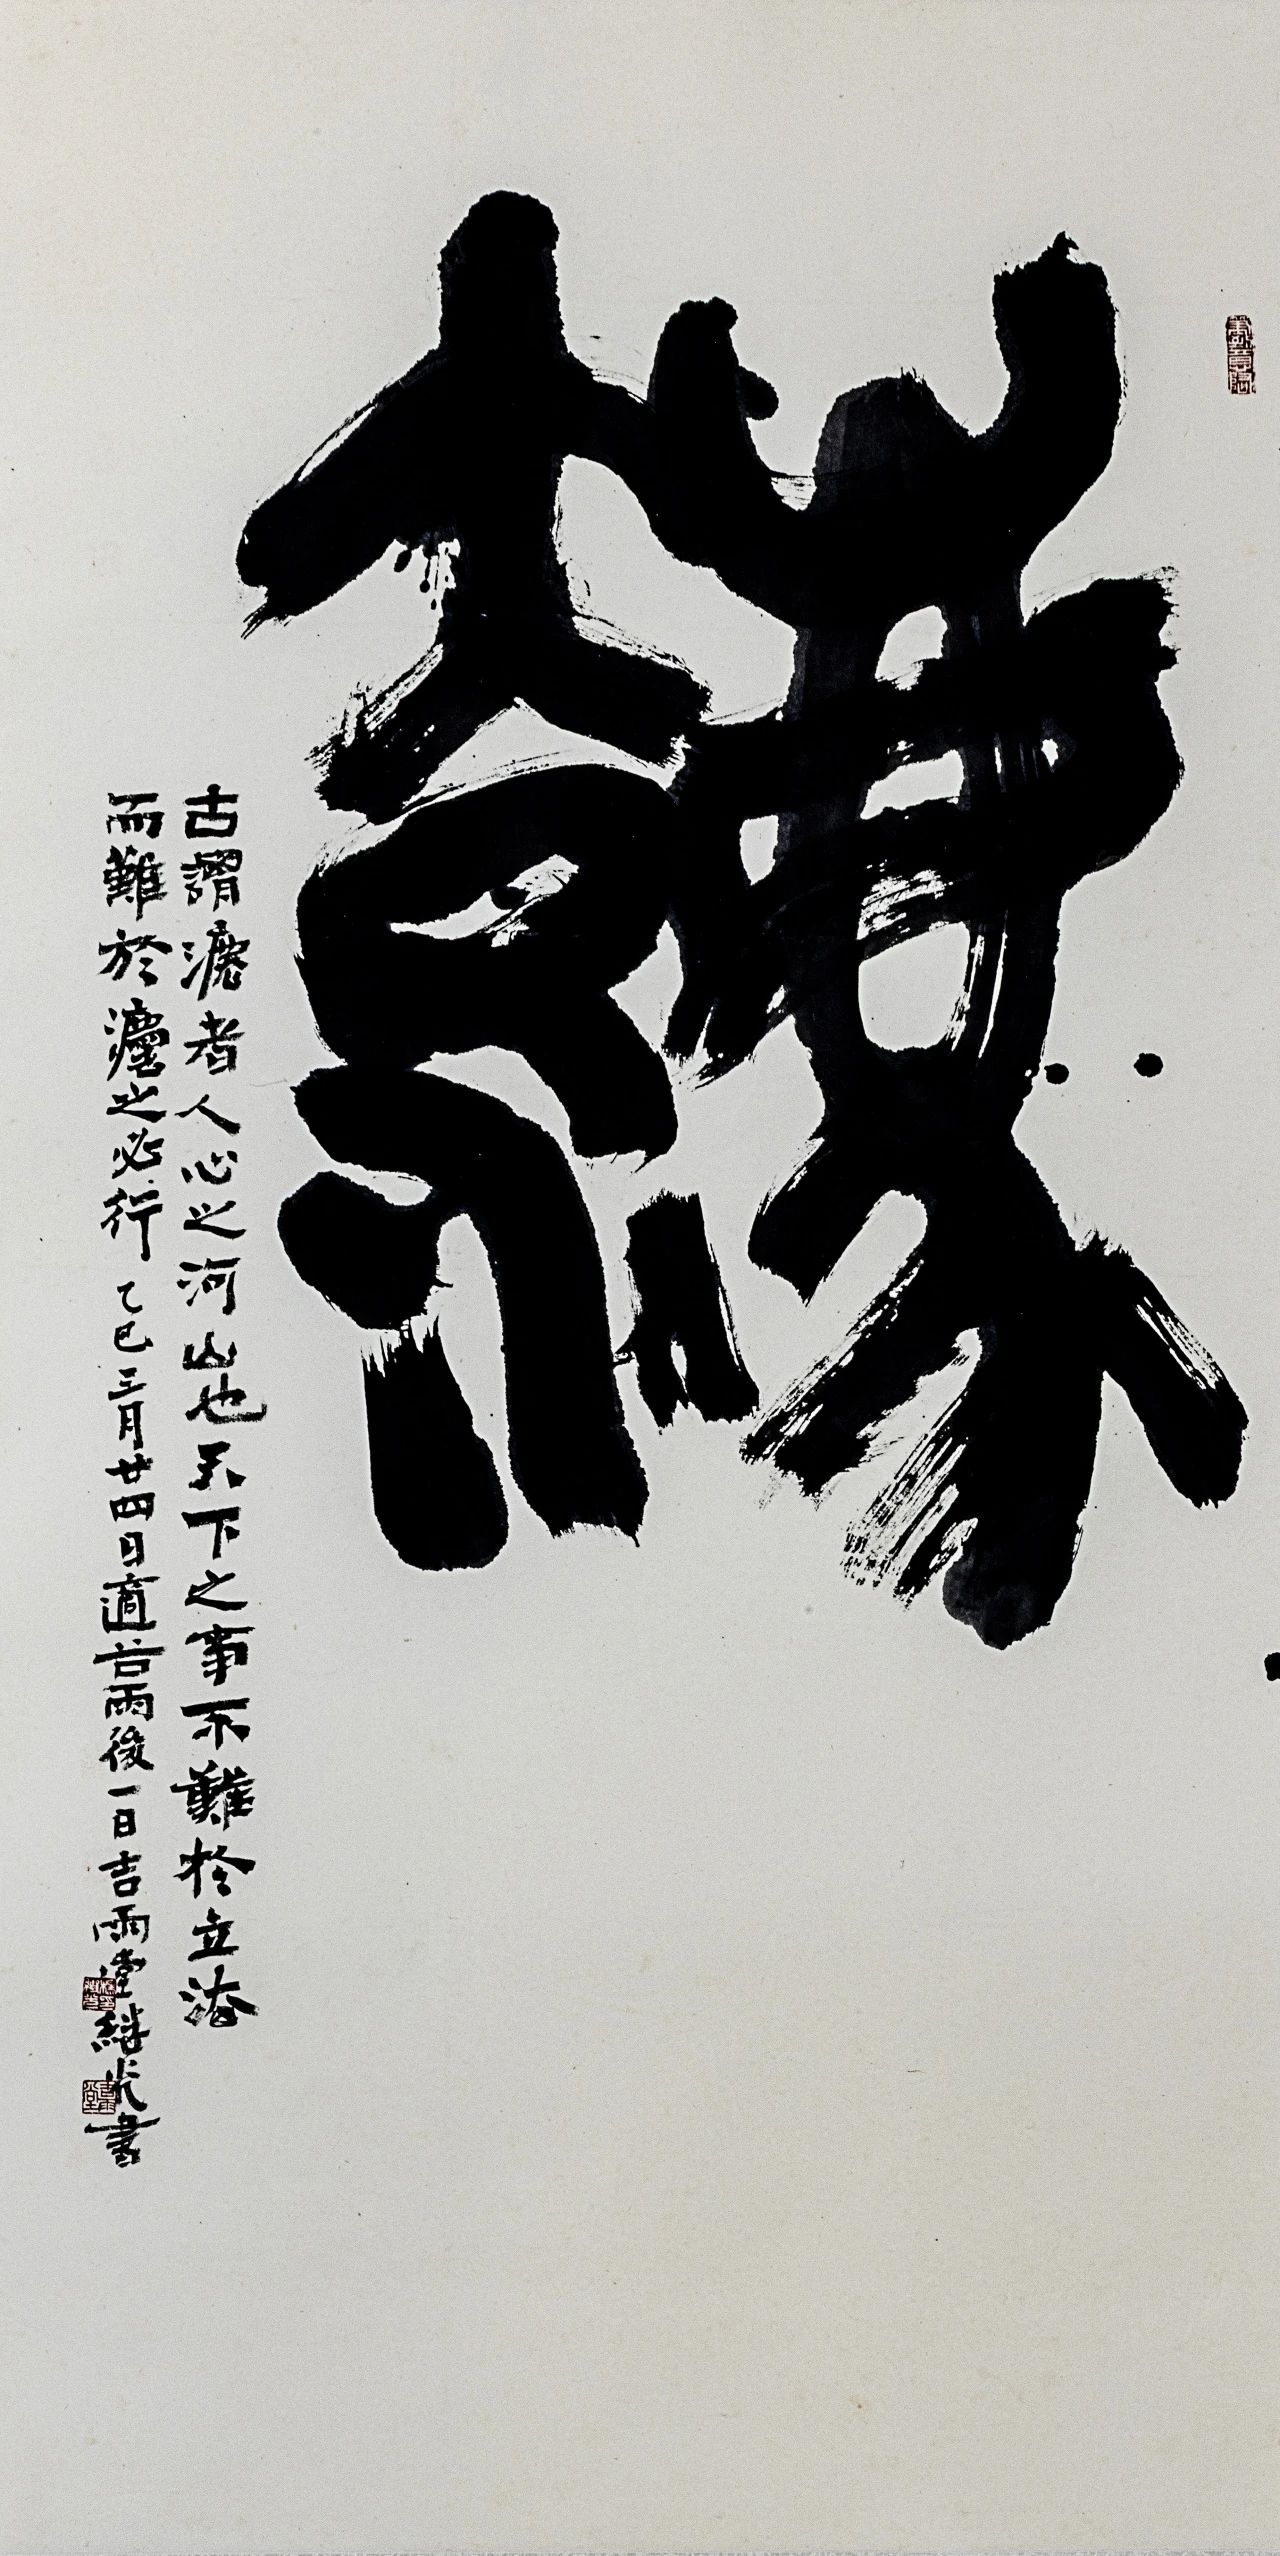 灋
古謂灋者人心之河山也天下之事不難於立法
而難於灋之必行 乙巳三月廿四日適谷雨後一日吉雨堂継光書